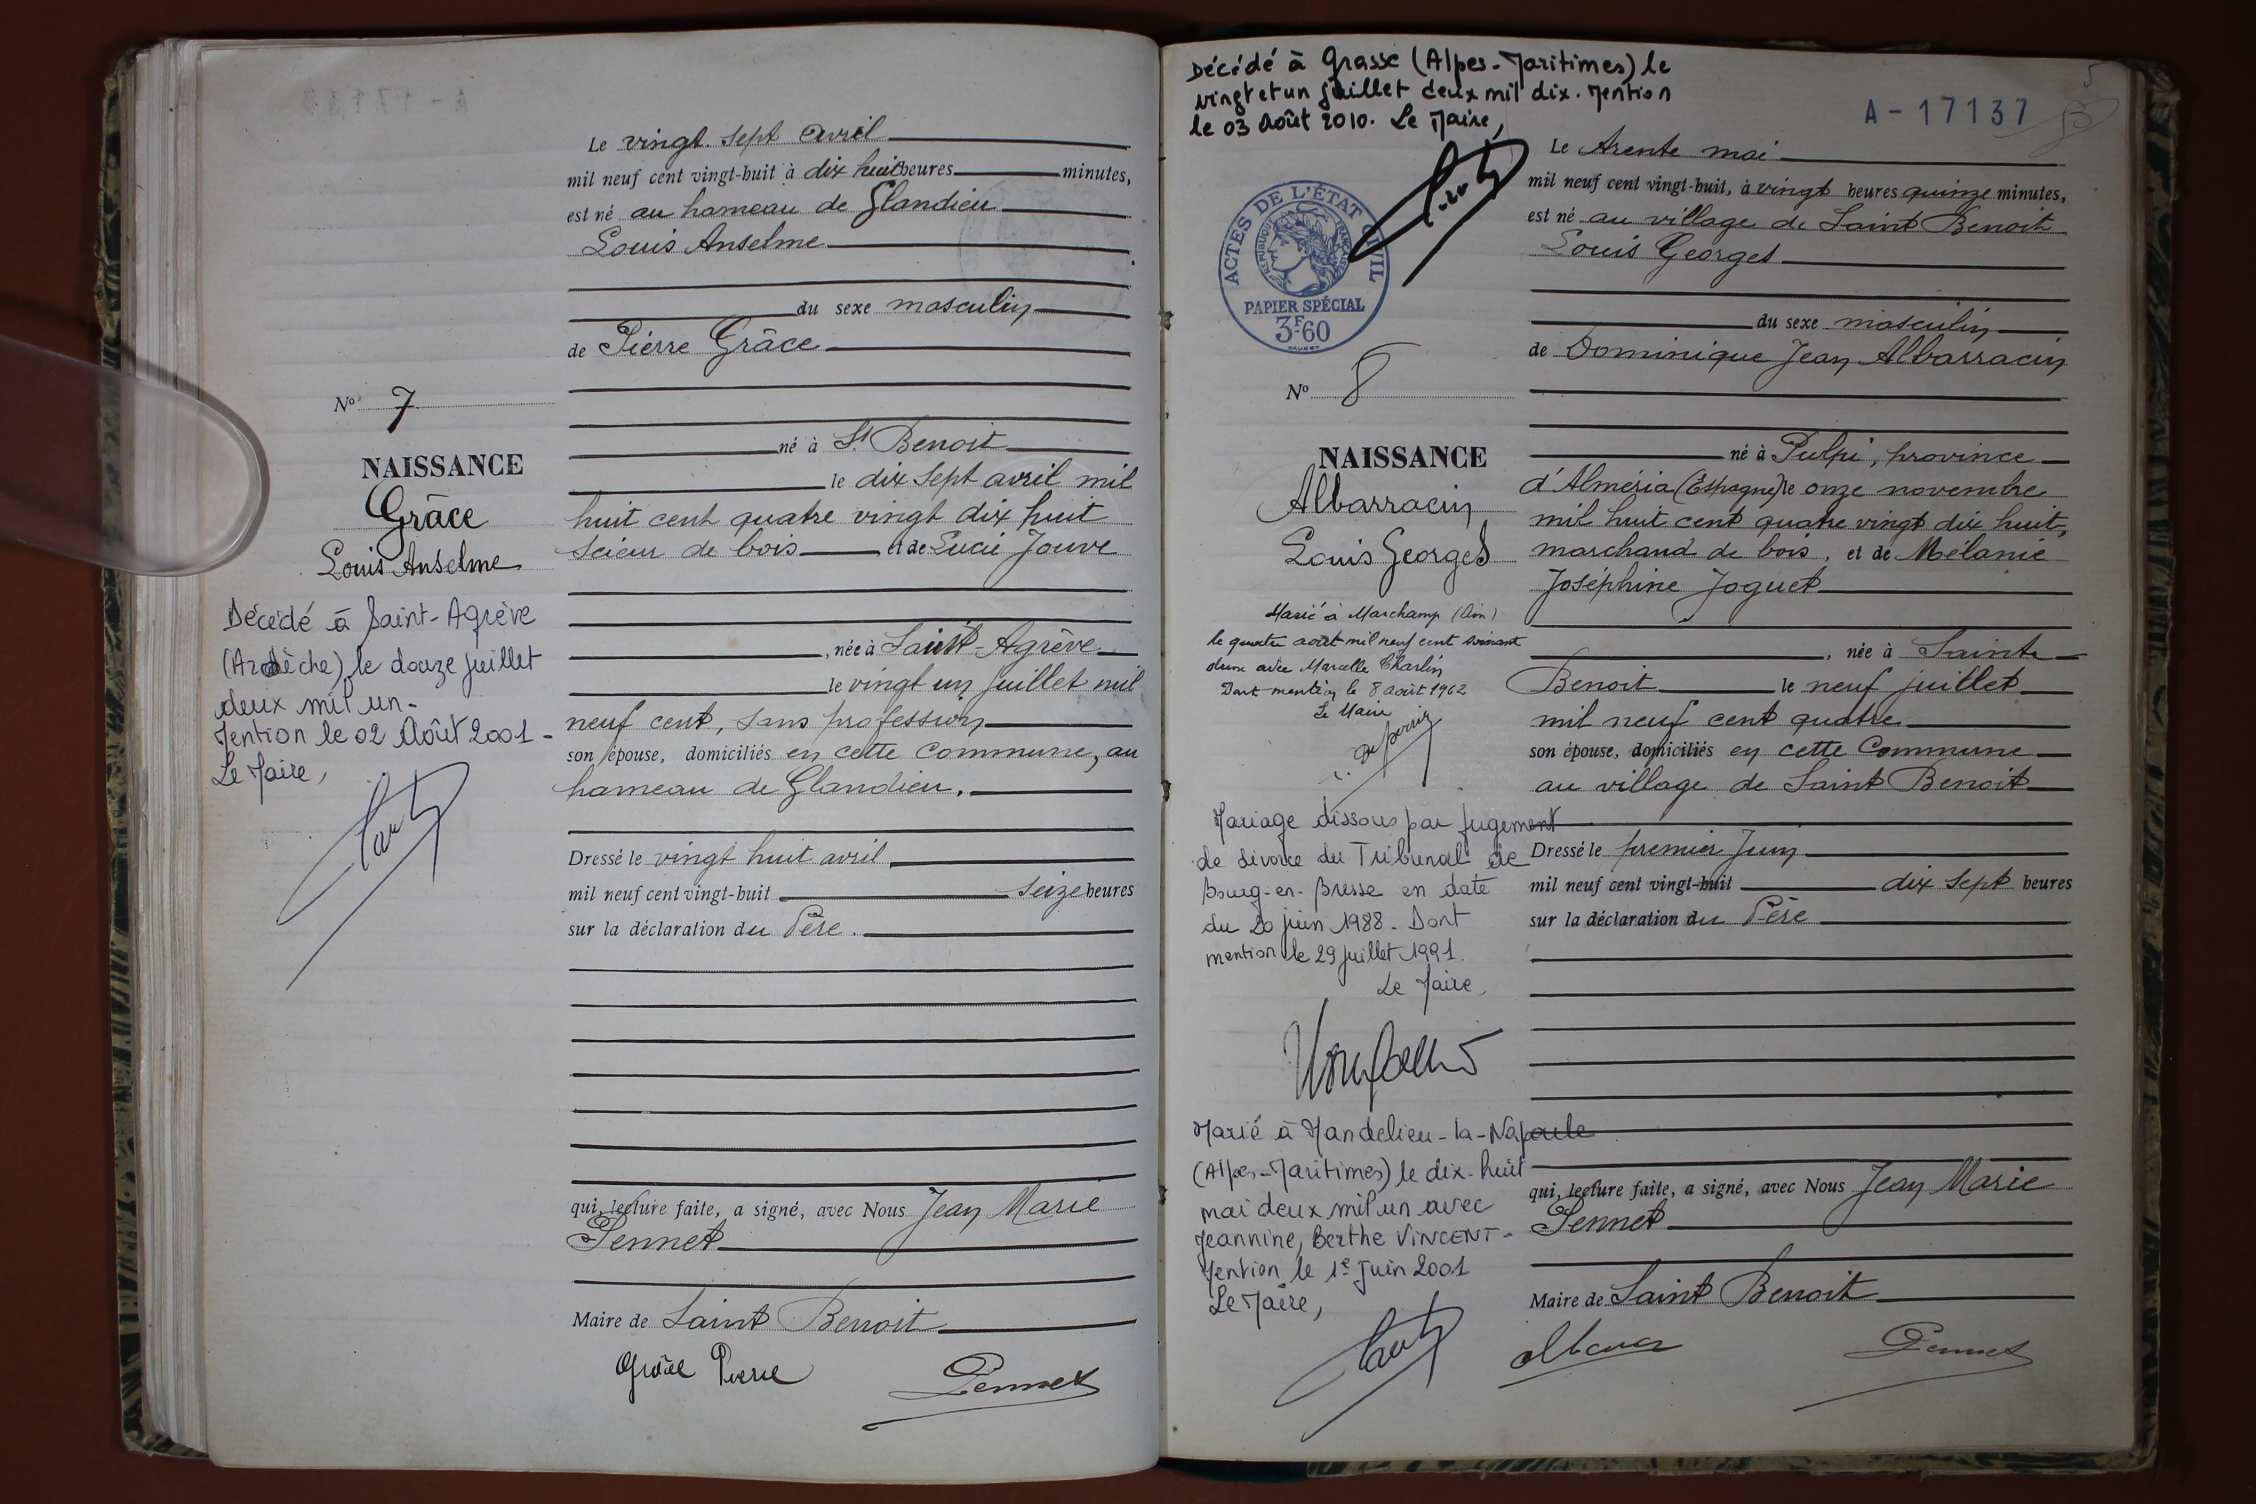 Le vingt sept avril
mil neuf cent vingt-huit à dix huit heures minutes,
est né au hameau de Glandieu
Louis Anselme
du sexe masculin
de Pierre Grâce
né à St Benoit
le dix sept avril mil
huit cent quatre vingt dix huit
scieur de bois et de Lucie Jouve
, née à Saint-Agrève
le vingt un juillet mil
neuf cent, sans profession
son épouse, domiciliés en cette commune, au
hameau de Glandieu.
Dressé le vingt huit avril
mil neuf cent vingt-huit seize heures
sur la déclaration du Père.
qui, lecture faite, a signé, avec Nous Jean Marie
Pennet
Maire de Saint Benoit
Grâce Pierre
Pennet
No 7
NAISSANCE
Grâce
Louis Anselme
Décédé à Saint-Agrève
(Ardèche) le douze juillet
deux mil un-
Mention le 02 Août 2001-
Le Maire,
Décédé à Grasse (Alpes-Maritimes) le
vingt et un juillet deux mil dix. Mention
le 03 Août 2010. Le Maire,
5
A-17137
ACTES DE L'ÉTAT CIVIL
RÉPUBLIQUE FRANÇAISE
PAPIER SPÉCIAL
3F60
No 8
NAISSANCE
Albarracin
Louis Georges
Marié à Marchamp (Ain)
le quatre août mil neuf cent soixante
deux avec Marcelle Charlin
Dont mention le 8 août 1962
Le Maire
Mariage dissous par jugement
de divorce du Tribunal de
Bourg-en-Bresse en date
du 20 juin 1988. Dont
mention le 29 juillet 1991.
Le Maire,
Marié à Mandelieu-la-Napoule
(Alpes-Maritimes) le dix-huit
mai deux mil un avec
Jeannine, Berthe VINCENT-
Mention le 1er Juin 2001
Le Maire,
Le trente mai
mil neuf cent vingt-huit, à vingt heures quinze minutes,
est né au village de Saint Benoit
Louis Georges
du sexe masculin
de Dominique Jean Albarracin
né à Pulpi, province
d'Alméria (Espagne) le onze novembre
mil huit cent quatre vingt dix huit,
marchand de bois, et de Mélanie
Joséphine Joguet
, née à Saint
Benoit le neuf juillet
mil neuf cent quatre
son épouse, domiciliés en cette Commune
au village de Saint Benoit
Dressé le premier Juin
mil neuf cent vingt-huit dix sept heures
sur la déclaration du Père
qui, lecture faite, a signé, avec Nous Jean Marie
Pennet
Maire de Saint Benoit
Pennet